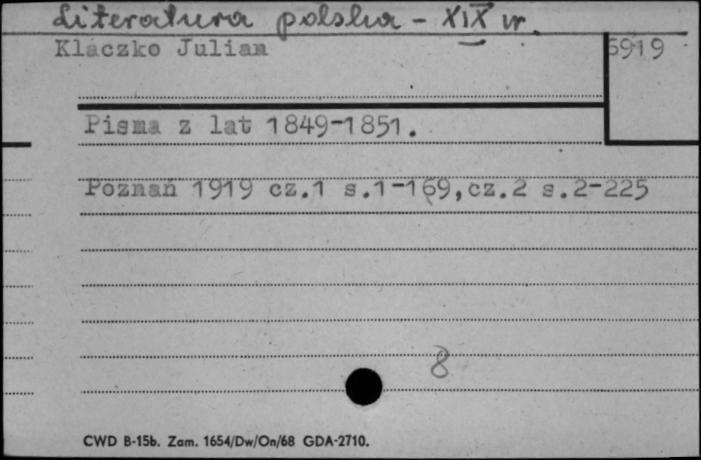 Literatura polska - XIX w.
Klaczko Julian
5919
Pisma z lat 1849-1851.
Poznań 1919 cz.1 s.1-169,cz.2 s.2-225
8
CWD B-15b. Zam. 1654/Dw/On/68 GDA-2710.